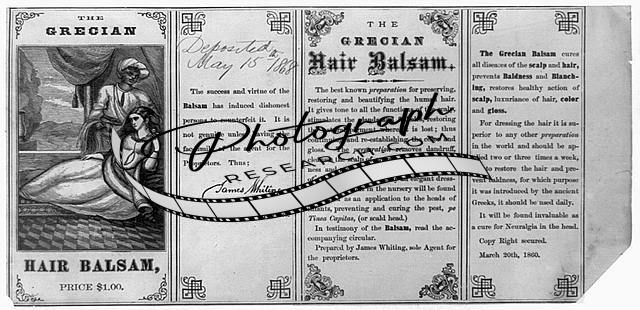 THE
GRECIAN
HAIR BALSAM,
PRICE $1.00.
Deposited
May 15 1868
The success and virtue of the
Balsam has induced dishonest
persons to counterfeit it. It is
not genuine unless having a
of the Agent for the
Proprietors. Thus;
James Whiting
THE
GRECIAN
Hair Balsam,
The best known preparation for preserving,
restoring and beautifying the human hair.
It gives tone to all the functions of
stimulates the
where it is lost; thus
continuing and re-establishing
gloss, removes dandruff,
the scalp
ness and
elegant dress-
in the nursery will be found
as an application to the heads of
infants, preventing and curing the pest, pe
Tinea Capitas, (or scald head.)
In testimony of the Balsam, read the ac-
companying circular.
Prepared by James Whiting, sole Agent for
the proprietors.
The Grecian Balsam cures
all diseases of the scalp and hair,
prevents Baldness and Blanch-
ing, restores healthy action of
scalp, luxuriance of hair, color
and gloss.
For dressing the hair it is su-
perior to any other preparation
in the world and should be ap-
plied two or three times a week,
to restore the hair and pre-
vent baldness, for which purpose
it was introduced by the ancient
Greeks, it should be used daily.
It will be found invaluable as
a cure for Neuralgia in the head.
Copy Right secured.
March 20th, 1860.
Photograph
RESEARCH.COM